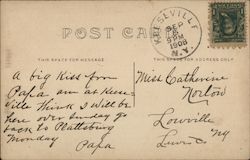 KEESEVILLE
SEP
5 PM
1908
N.Y.
POST CARD
THIS SPACE FOR MESSAGE
THIS SPACE FOR ADDRESS ONLY
A big Kiss from
Papa am at Keese-
ville think I will be
here over Sunday go
back to Plattsburg
Monday
Papa
Miss Catherine
Norton
Lowville
NY
Lewis Co